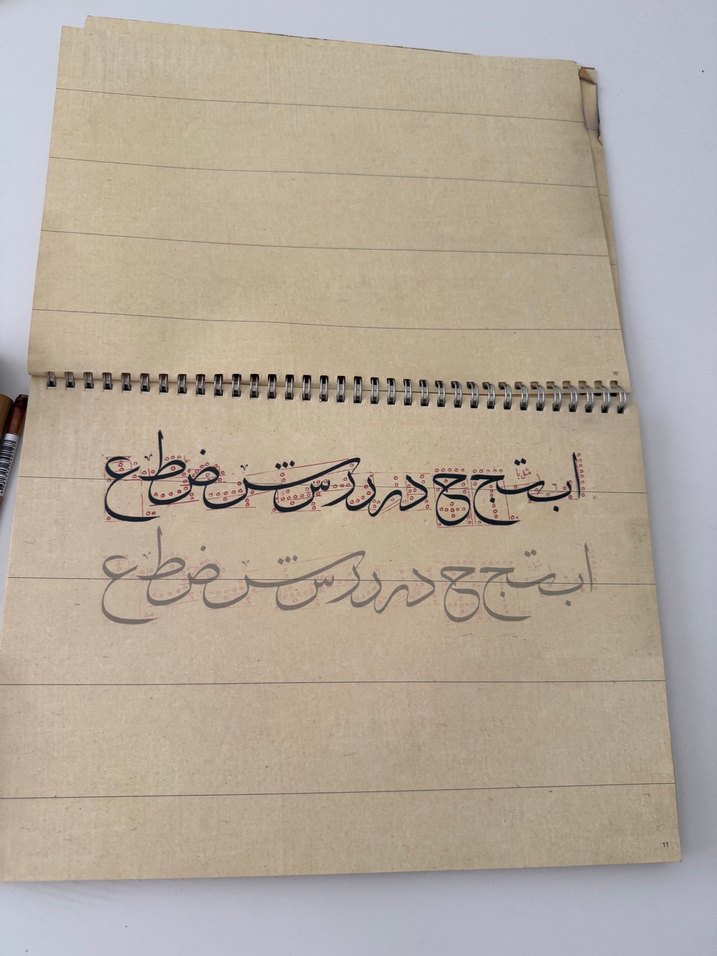 10
ا ب ت ج ح د ر ر ر س ش ض ط ع
ا ب ت ج ح د ر ر ر س ش ض ط ع
11